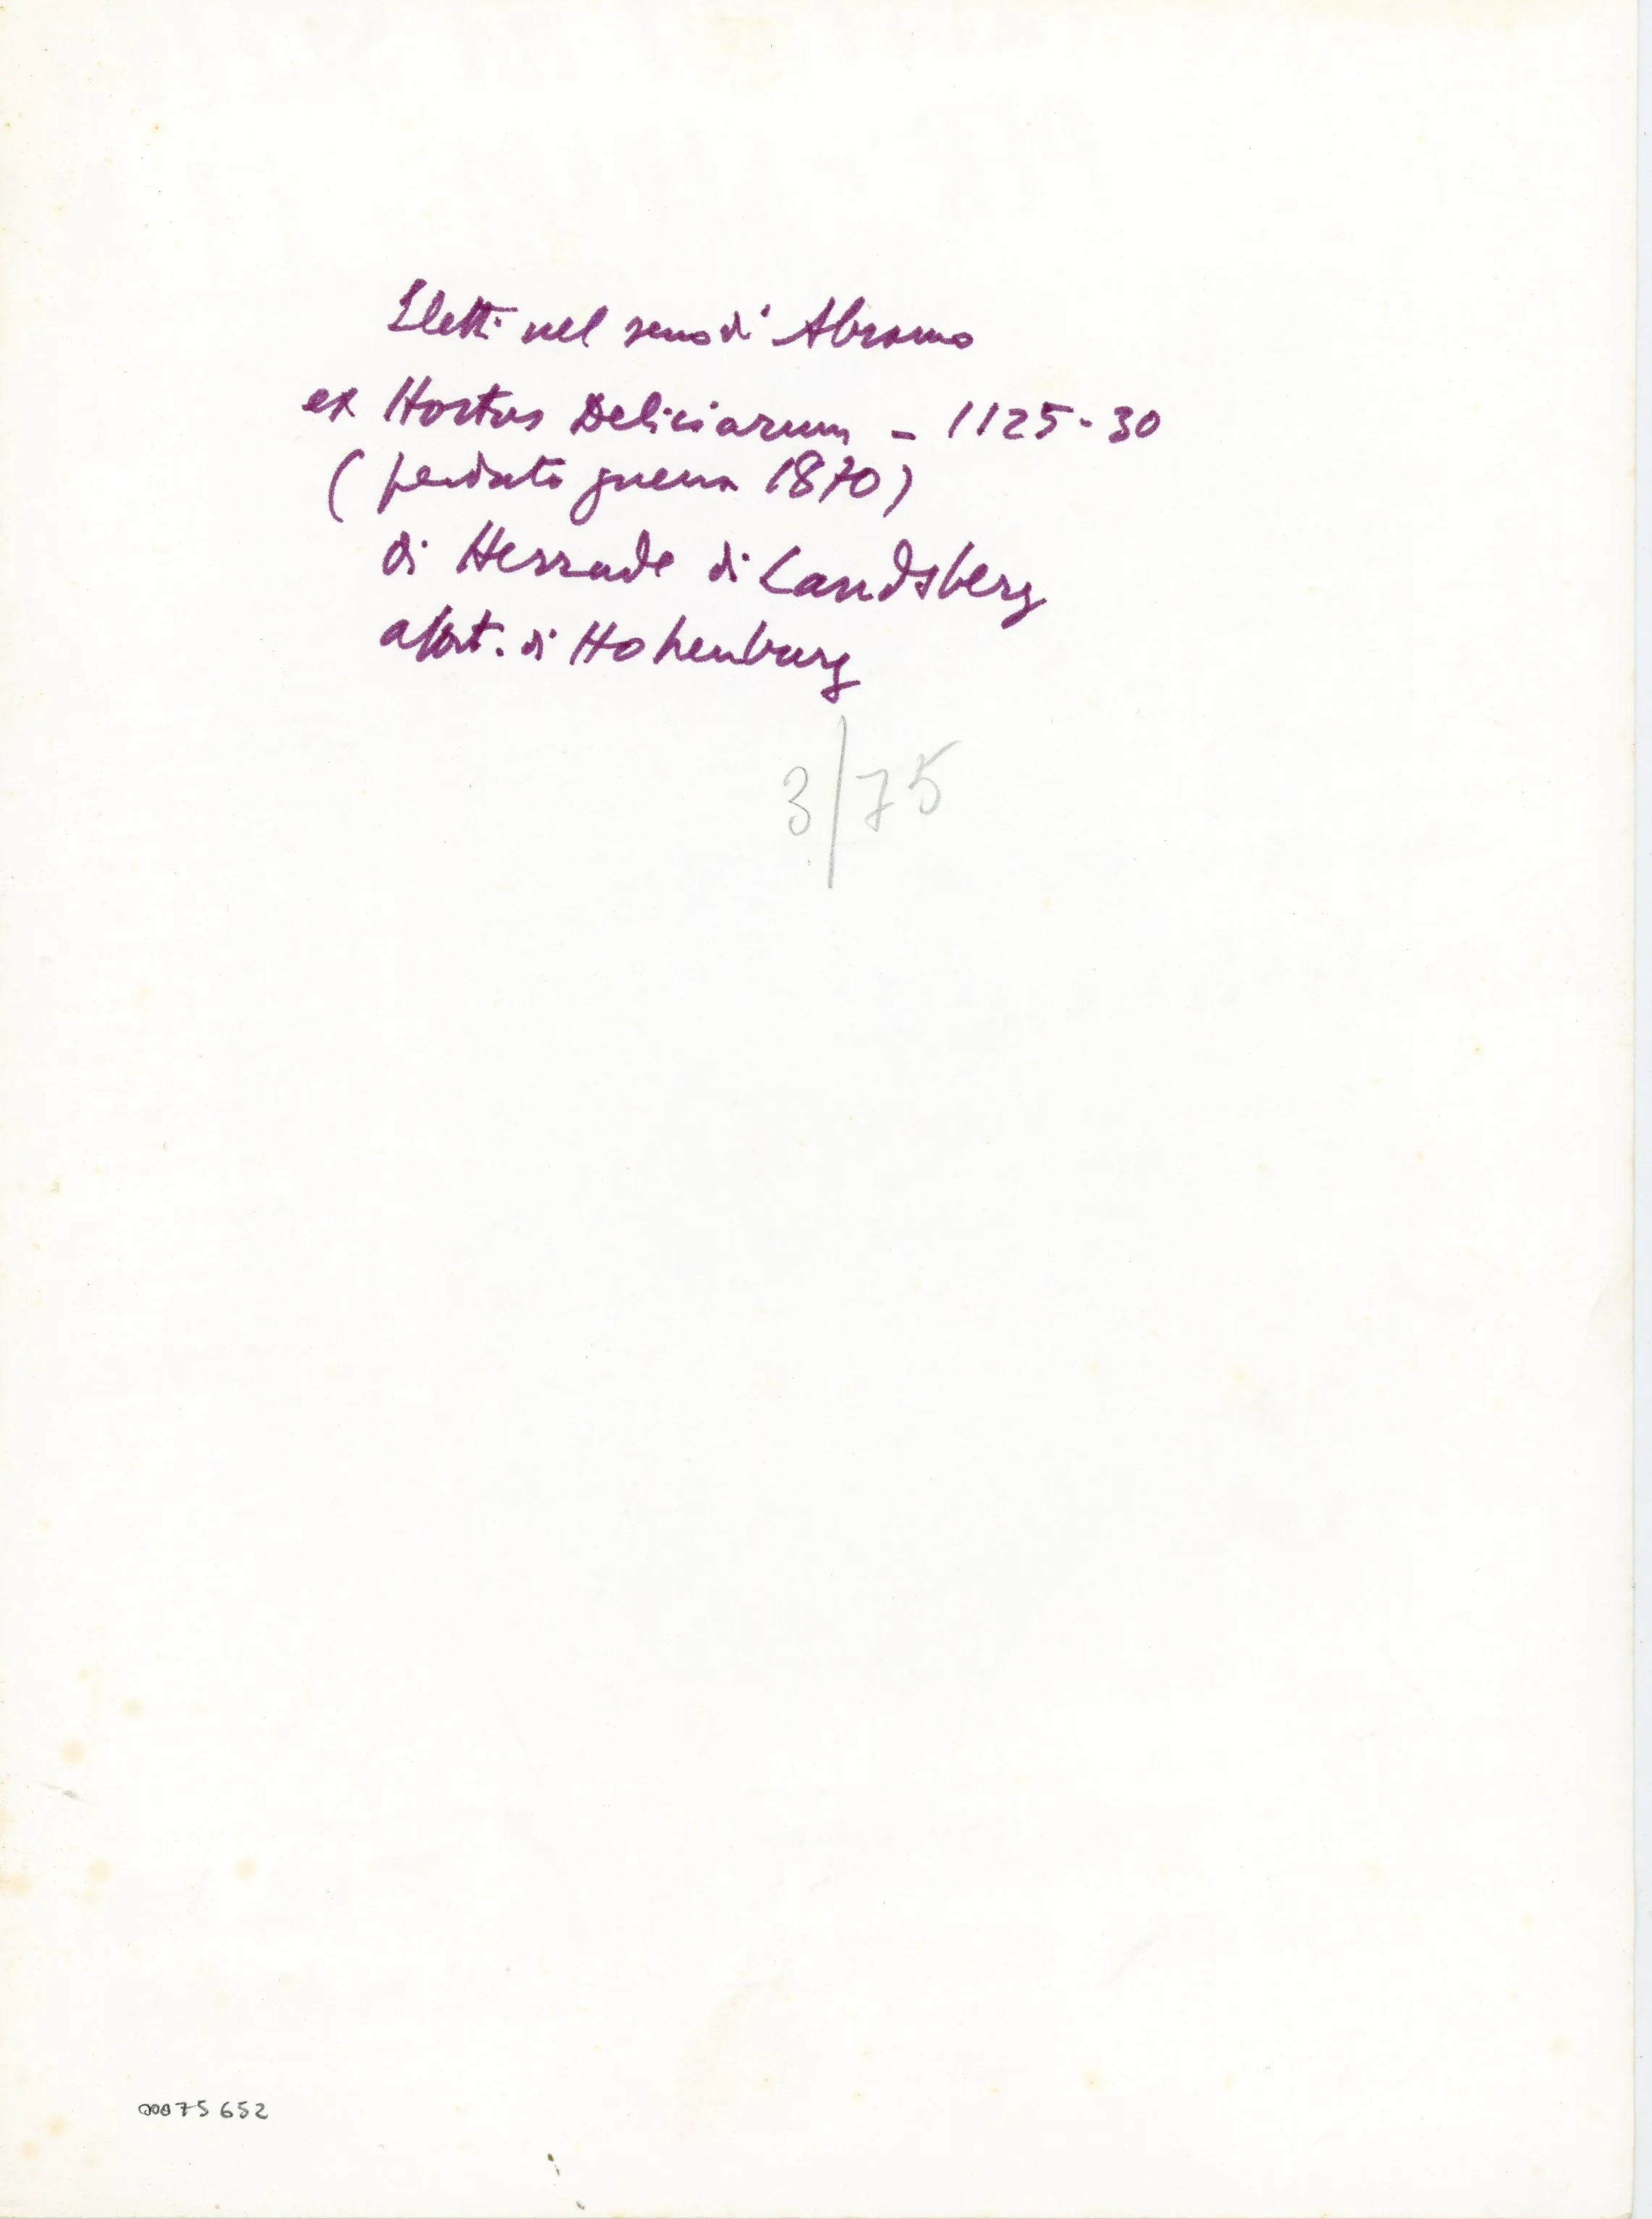 Eletti nel seno di Abramo
ex Hortus Deliciarum - 1125-30
(perduto guerra 1870)
di Herrade di Landsberg
abat. di Hohenburg
3/75
000075652